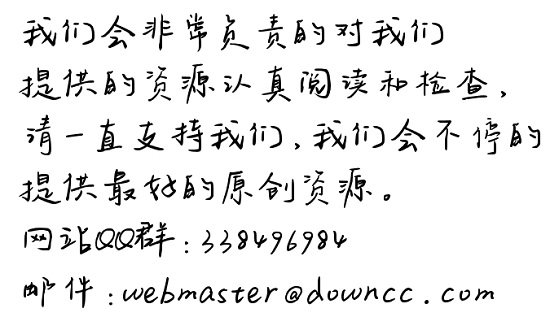 我们会非常负责的对我们
提供的资源认真阅读和检查，
请一直支持我们，我们会不停的
提供最好的原创资源。
网站QQ群：338496984
邮件：webmaster@downcc.com